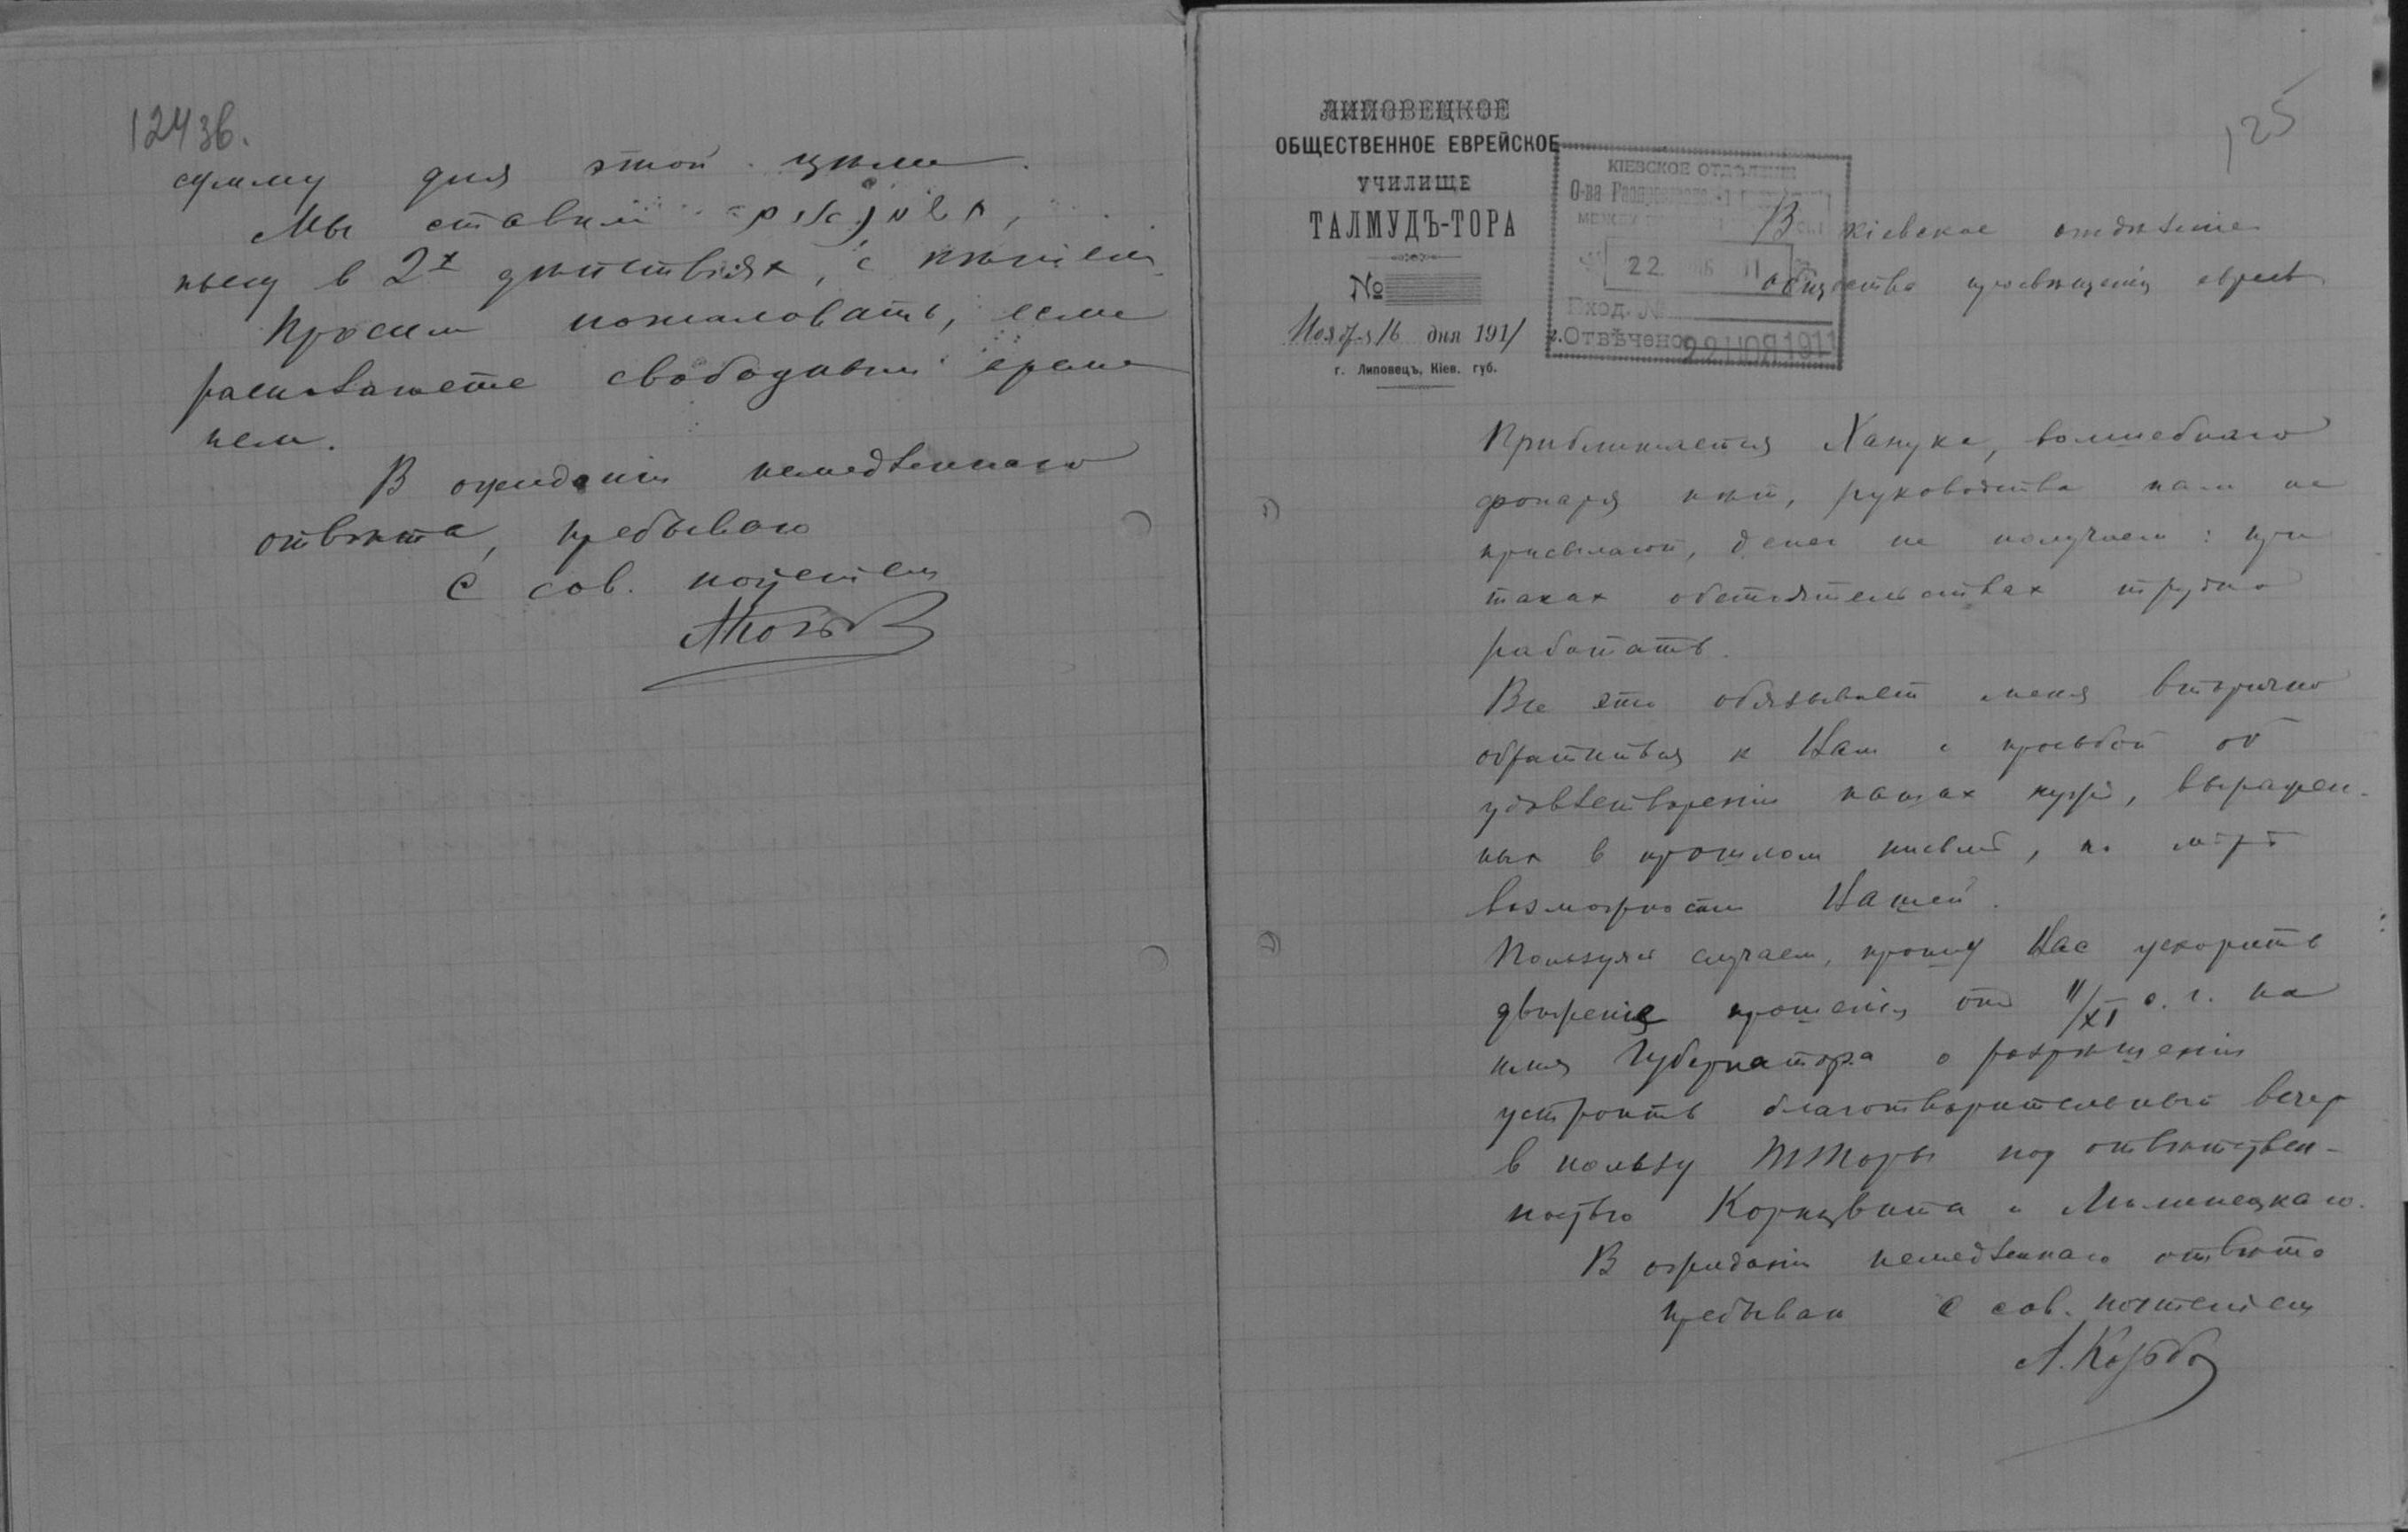 124 зв.
сумму для этой цели.
Мы ставим
пьесу в 2х дѣйствіях, с пѣніем.
Просим пожаловать, если
располагаете свободным време
нем.
В ожиданіи немедленнаго
отвѣта, пребываю
С сов. почтеніем
125
ЛИПОВЕЦКОЕ
ОБЩЕСТВЕННОЕ ЕВРЕЙСКОЕ
УЧИЛИЩЕ
ТАЛМУДЪ-ТОРА
№
Ноября 16 дня 1911 г.
г. Липовецъ, Кіев. губ.
КІЕВСКОЕ ОТДѢЛЕНІЕ
О-ва
МЕЖДУ
22 11
Вход. №
Отвѣчено 22 НОЯ 1911
В Кіевское отдѣленіе
общества просвѣщенія евреев
Приближается Ханука, волшебнаго
фонаря нѣт, руководства нам не
присылают, денег не получаем: при
таких обстоятельствах трудно
работать.
Все это обязывает меня вторично
обратиться к Вам с просьбой об
удовлетвореніи наших нужд, выражен-
ных в прошлом письмѣ, по мѣрѣ
возможности Вашей.
Пользуясь случаем, прошу Вас ускорить
движеніе прошенія от 11/XI с. г. на
имя Губернатора о разрѣшеніи
устроить благотворительный вечер
в пользу Т Торы под отвѣтствен-
ностью Корнцвита и
В ожиданіи немедленнаго отвѣта
пребываю с сов. почтеніем